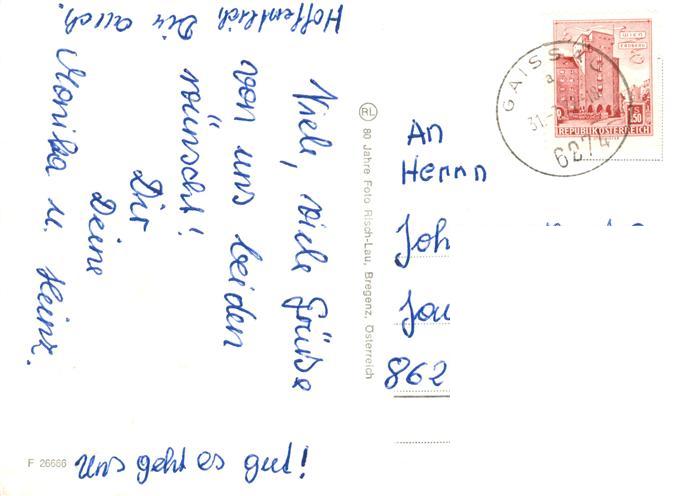 Viele, viele Grüße
von uns beiden
wünscht!
Dir
Deine
Monika u. Heinz.
uns geht es gut!
Hoffentlich Dir auch.
F 26666
RL 80 Jahre Foto Risch-Lau, Bregenz, Österreich
An
Herrn
Joh
862
GAISS
a
31.
6874
WIEN
ERDBERG
S 1.50
REPUBLIK ÖSTERREICH